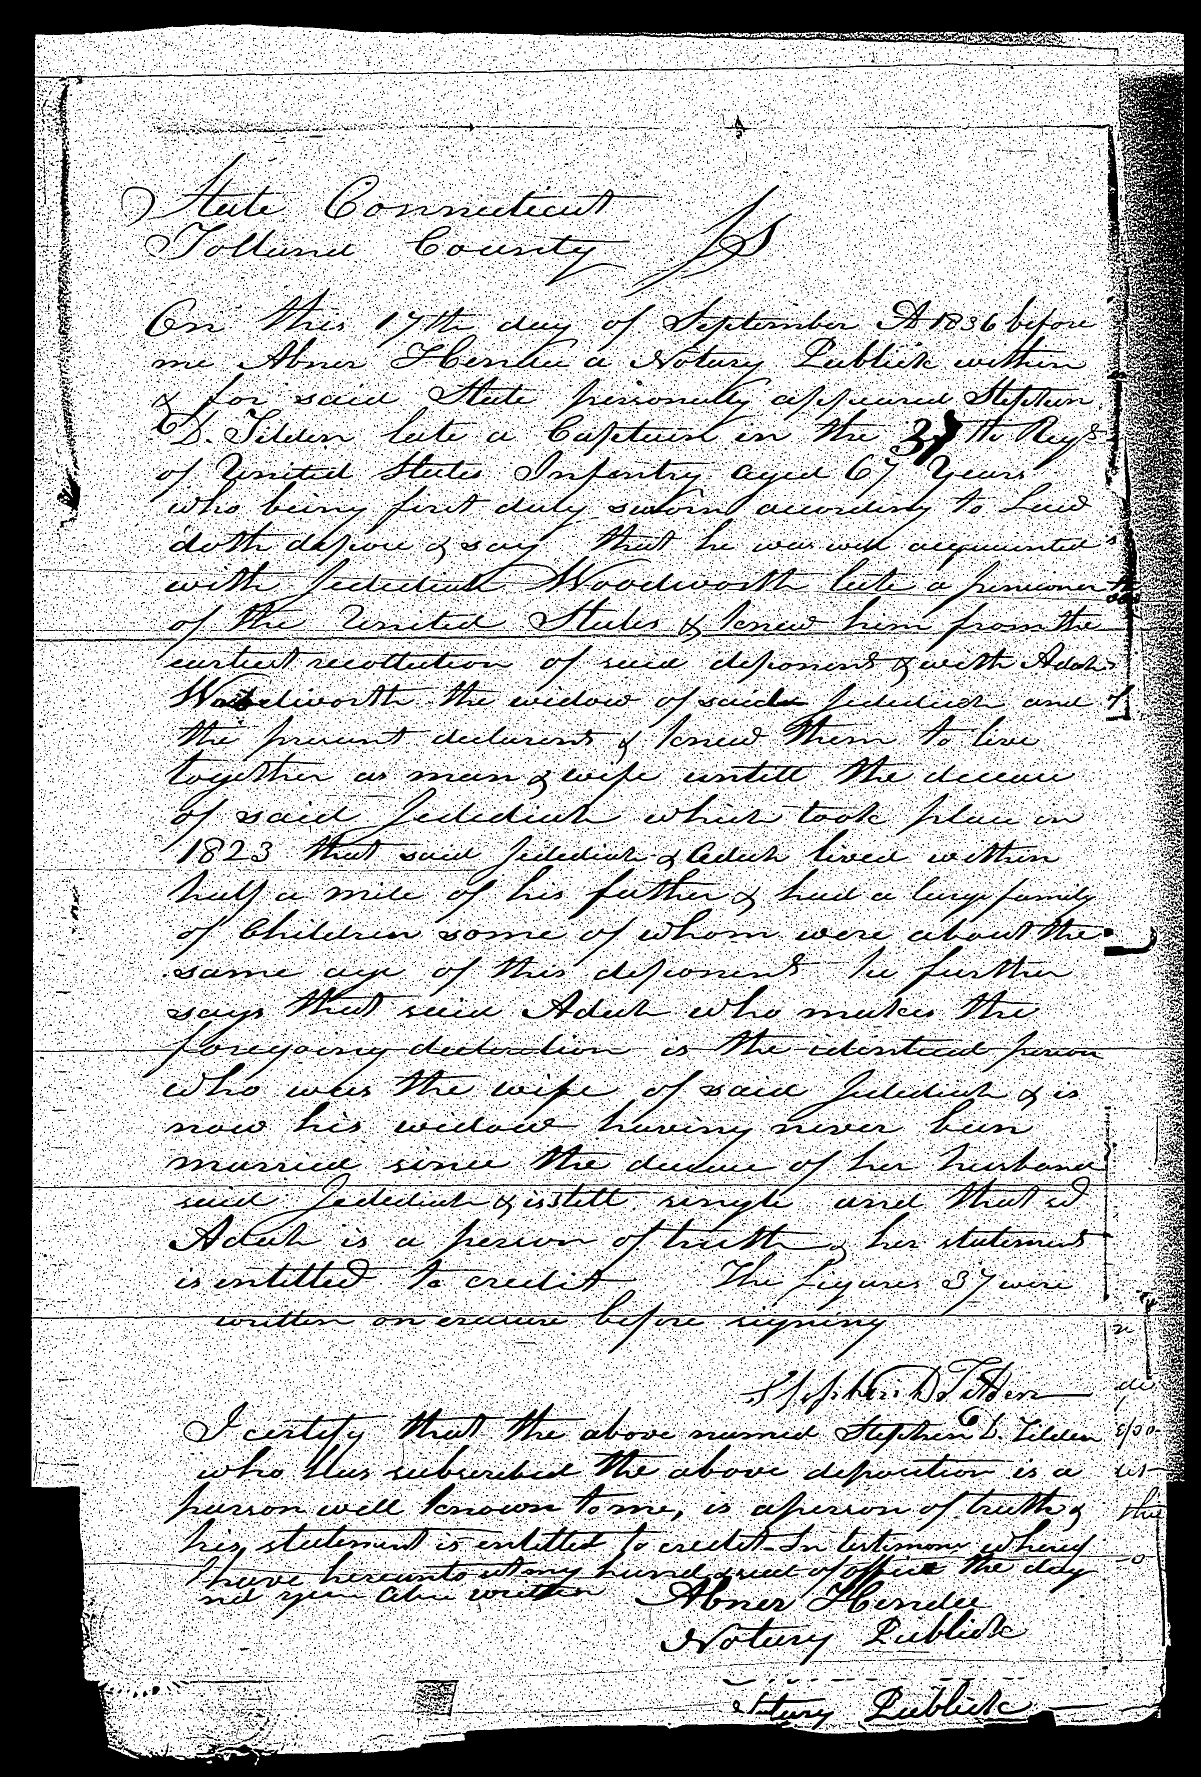 State Connecticut
Tolland County ss
On this 17th day of September AD 1836 before
me Abner Hendee a Notary Publick within
& for said State personally appeared Stephen
D. Tilden late a Captain in the 37 th Regt
of United States Infantry aged 67 Years
who being first duly sworn according to Law
doth depose & say that he was well acquainted
with Jedediah Woodworth late a pensioner
of the United States & knew him from the
earliest recollection of said deponent & with Adah
Woodworth the widow of said Jedediah and
the present declarent & knew them to live
together as man & wife untill the decease
of said Jedediah which took place in
1823 that said Jedediah & Adah lived within
half a mile of his father & had a large family
of Children some of whom were about the
same age of this deponent he further
says that said Adah who makes the
foregoing declaration is the identical person
who was the wife of said Jedediah & is
now his widow having never been
married since the decease of her husband
said Jedediah & is still single and that sd
Adah is a person of truth & her statement
is entitled to credit The figures 37 were
written on erasure before signing
Stephen D Tilden
I certify that the above named Stephen D. Tilden
who has subscribed the above deposition is a
person well known to me, is a person of truth &
his statement is entitled to credit - In testimony whereof
I have hereunto set my hand & seal of office the day
nd year abov written Abner Hendee
Notary Publick
otary Publick